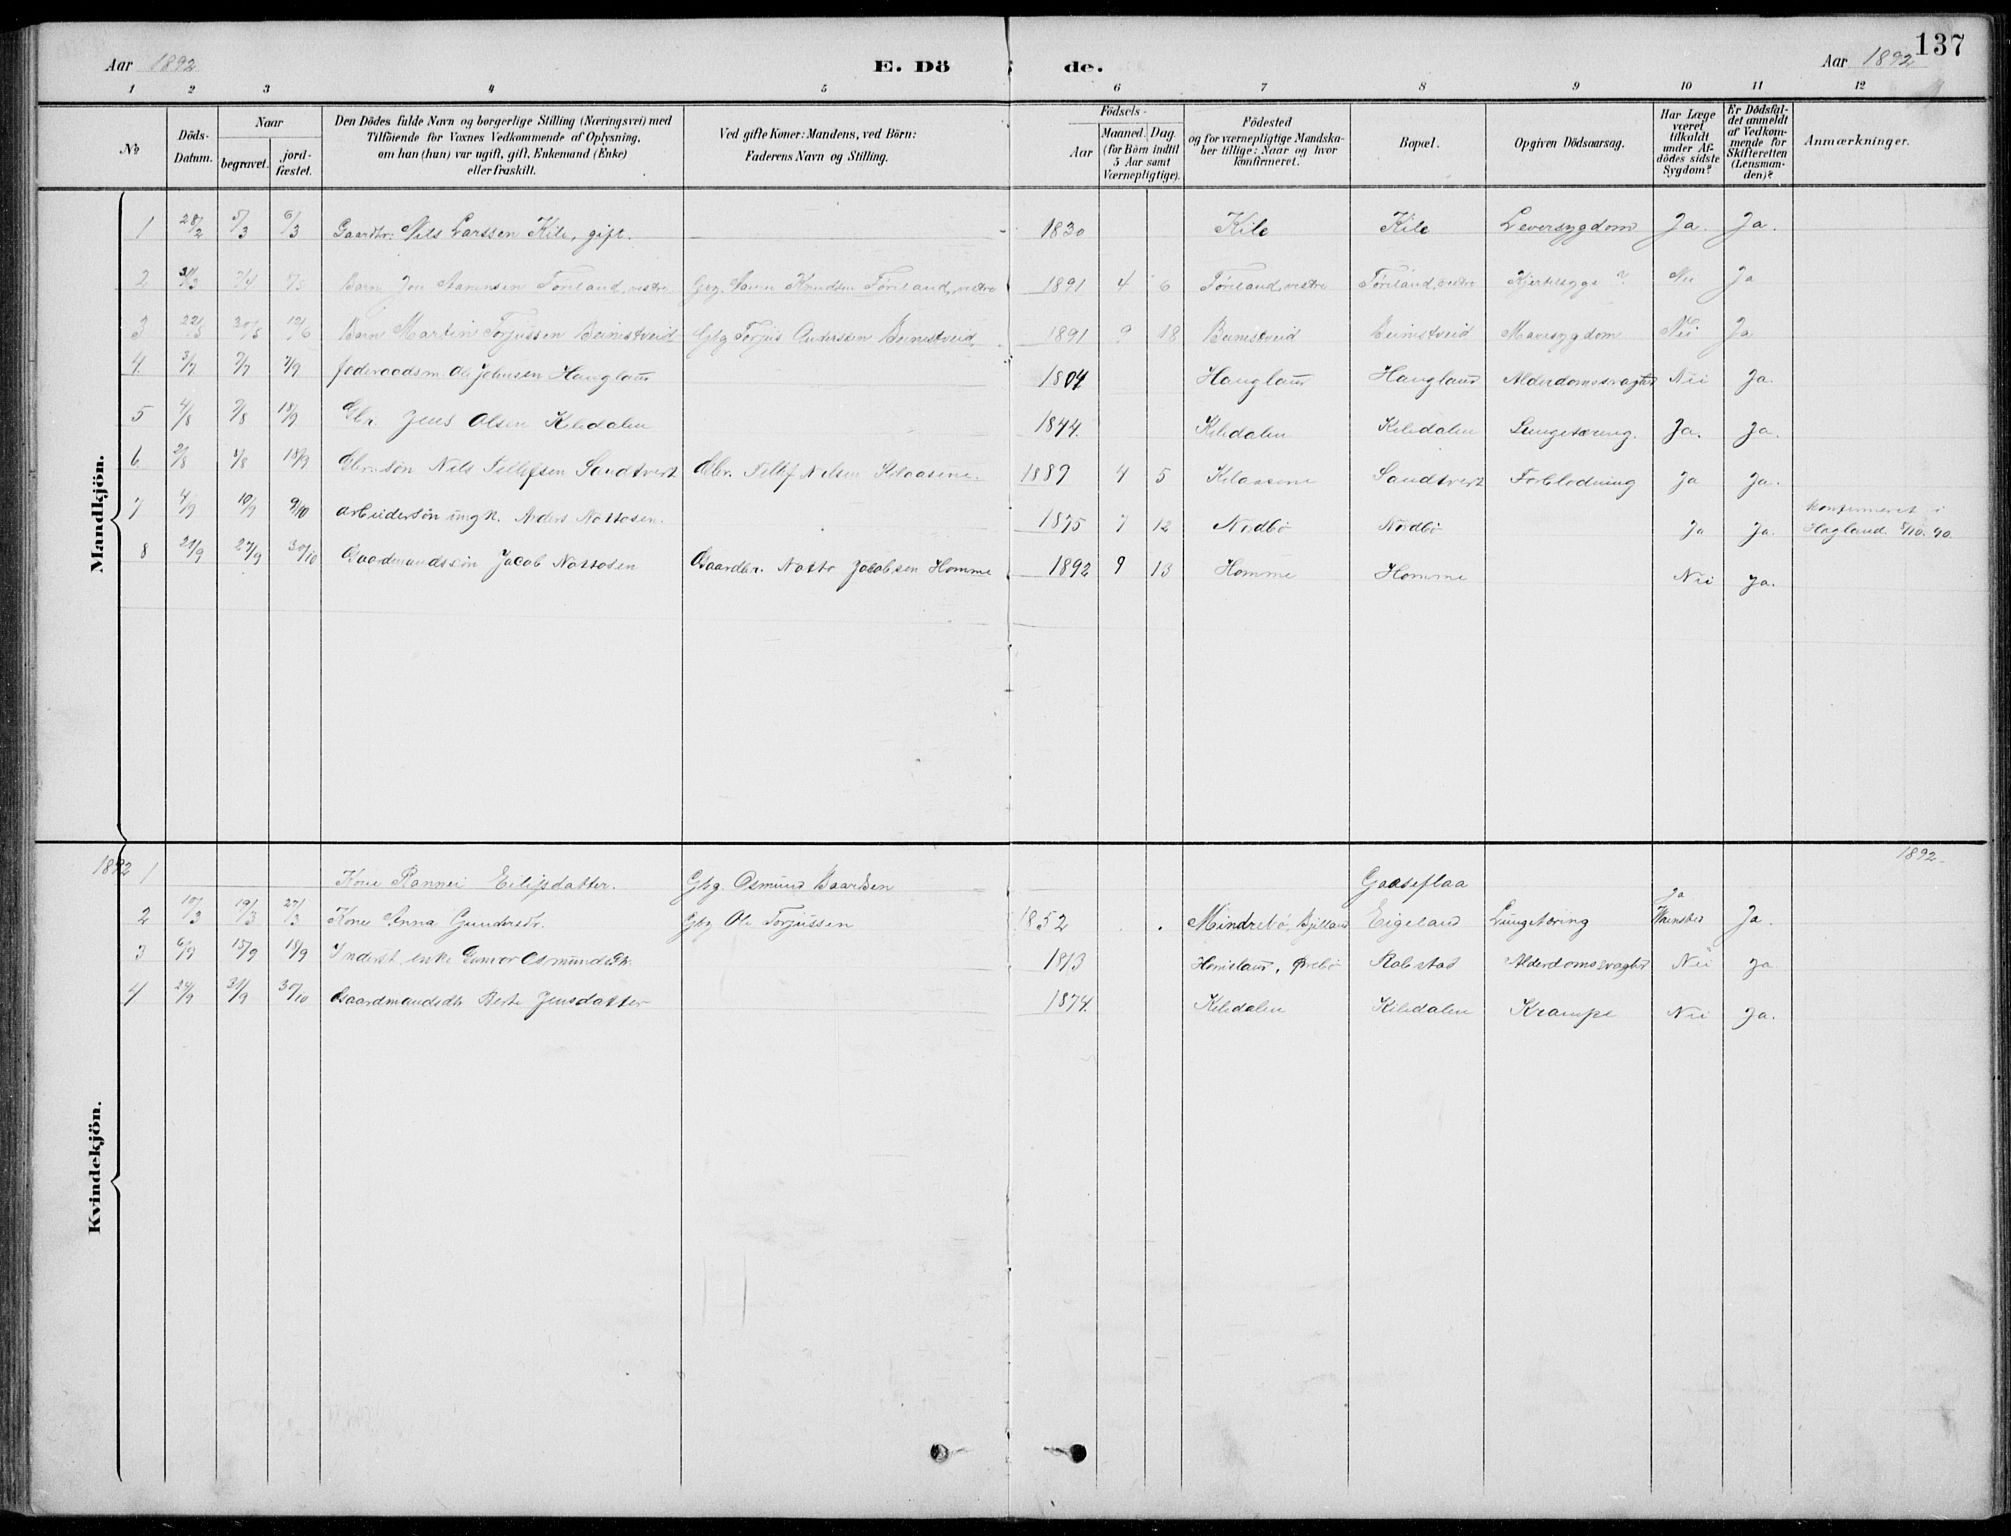 137
Aar 1892 E. Dö de. Aar 1892
1 2 3 4 5 6 7 8 9 10 11 12
No
Döds-
Datum.
Naar
begravet.
jord-
fæstet.
Den Dödes fulde Navn og borgerlige Stilling (Næringsvei) med
Tilföiende for Voxnes Vedkommende af Oplysning,
om han (hun) var ugift, gift, Enkemand (Enke)
eller fraskilt.
Ved gifte Koner: Mandens, ved Börn:
Faderens Navn og Stilling.
Födsels-
Aar
Maaned. Dag.
(for Börn indtil
5 Aar samt
Værnepligtige).
Födested
og for værnepligtige Mandska-
ber tillige: Naar og hvor
konfirmeret.
Bopæl.
Opgiven Dödsaarsag.
Har Læge
været
tilkaldt
under Af-
dödes sidste
Sygdom?
Er Dödsfal-
det anmeldt
af Vedkom-
mende for
Skifteretten
(Lensman-
den)?
Anmærkninger.
Mandkjön.
1 28/2 5/3 6/3 Gaardbr. Nils Larssen Kile, gift. 1830 Kile Kile Leversygdom Ja. Ja.
2 31/3 7/4 7/5 Barn Jon Knudsen Föreland, vestre 1891 4 6 Föreland, vestre Föreland, vestre Kjertelsyge ? Nei Ja
3 22/5 30/5 12/6 Barn Martin Torjussen Beinestveid Gbg Torjus Anderssen Beinestveid 1891 9 18 Beinestveid Beinestveid Mavesygdom Nei Ja
4. 3/7 7/7 4/9 föderaadsm. Ole Johnsen Hauglaus 1804 Hauglaus Hauglaus Alderdomssvaghed Nei Ja.
5 4/8 9/8 18/9 Gbr. Jens Olsen Kiledalen 1844. Kiledalen Kiledalen Lungetæring. Ja. Ja.
6 2/8 8/8 18/9 Gbr. sön Nils Tellefsen Sandtvert Gbr. Tellef Nilsen Kilaasene. 1889 4 5 Kilaasene Sandtvert Forblodning Ja Ja.
7 4/9 10/9 9/10 arbeidersön ungk. Anders Nottosen. 1875 7 12 Nordbö Nordbö Ja Ja. konfirmeret i
Hægland 5/10. 90.
8 21/9 27/9 30/10 Gaardmandssön Jacob Nottosen Gaardbr. Notto Jacobsen Homme 1892 9 13 Homme Homme Nei Ja.
Kvindekjön.
1892 1892
1 Kone Rannei Eilifsdatter. Gbg. Osmund Baardsen Gaaseflaa
2 10/3 19/3 27/3 Kone Anna Gundersdr. Gbg Ole Torjussen 1852 Mindrebö, Bjelland Eigeland Lungetæring Ja Ja.
3 6/9 15/9 18/9 Inderst enke Gunvor Osmundsdtr. 1813 Homelaus, Övrebö Rabstad Alderdomssvaghed Nei Ja
4 24/9 31/9 30/10 Gaardmandsdtr Berte Jensdatter 1874. Kiledalen Kiledalen Krampe Nei Ja.